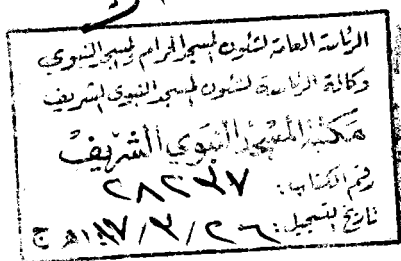 الرئاسة العامة لشئون المسجد الحرام والمسجد النبوي
وكالة الرئاسة لشئون المسجد النبوي الشريف
مكتبة المسجد النبوي الشريف
رقم الكتاب: ٢٨٢٣٧
تاريخ التسجيل: ٢٦/٣/